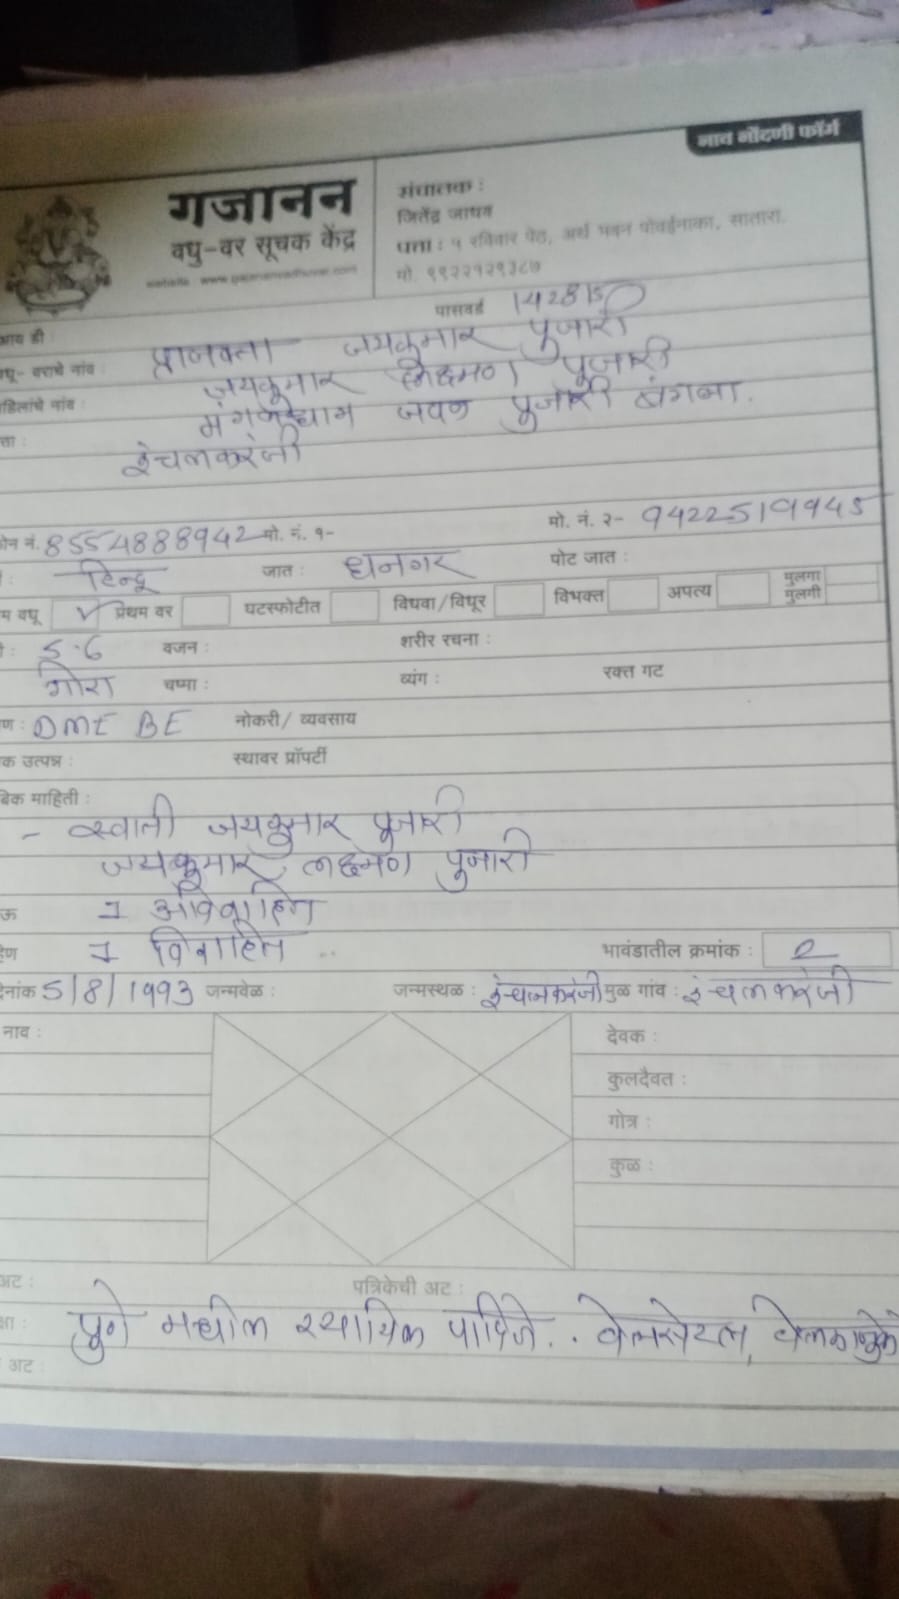 नाव नोंदणी फॉर्म
गजानन
वधु-वर सूचक केंद्र
संचालक :
जितेंद्र जाधव
पत्ता : ५ रविवार पेठ, अर्थ भवन पोवईनाका, सातारा.
मो. ९९२२१२९३८७
आय डी : पासवर्ड
वधू- वराचे नांव : प्राजक्ता जयकुमार पुजारी
हिलांचे नांव : जयकुमार लक्ष्मण पुजारी
त्ता : जवळ पुजारी बंगला.
इचलकरंजी
ोन नं. 8554888942 मो. नं. १- मो. नं. २- 9422519945
: हिन्दू जात : धनगर पोट जात :
म वधू ✓ प्रथम वर घटस्फोटीत विधवा/विधूर विभक्त अपत्य मुलगा मुलगी
: 5.6 वजन : शरीर रचना :
गोरा चष्मा : व्यंग : रक्त गट
ण : DME BE नोकरी/ व्यवसाय
क उत्पन्न : स्थावर प्रॉपर्टी
बिक माहिती :
- स्वाती जयकुमार पुजारी
जयकुमार लक्ष्मण पुजारी
ऊ १ अविवाहित
हिण १ विवाहित भावंडातील क्रमांक : 2
दिनांक 5/8/1993 जन्मवेळ : जन्मस्थळ : इचलकरंजी मुळ गांव : इचलकरंजी
नाव : देवक :
कुलदैवत :
गोत्र :
कुळ :
अट : पत्रिकेची अट :
पुणे मधील स्थायिक पाहिजे.. वेलसेटल,
अट :